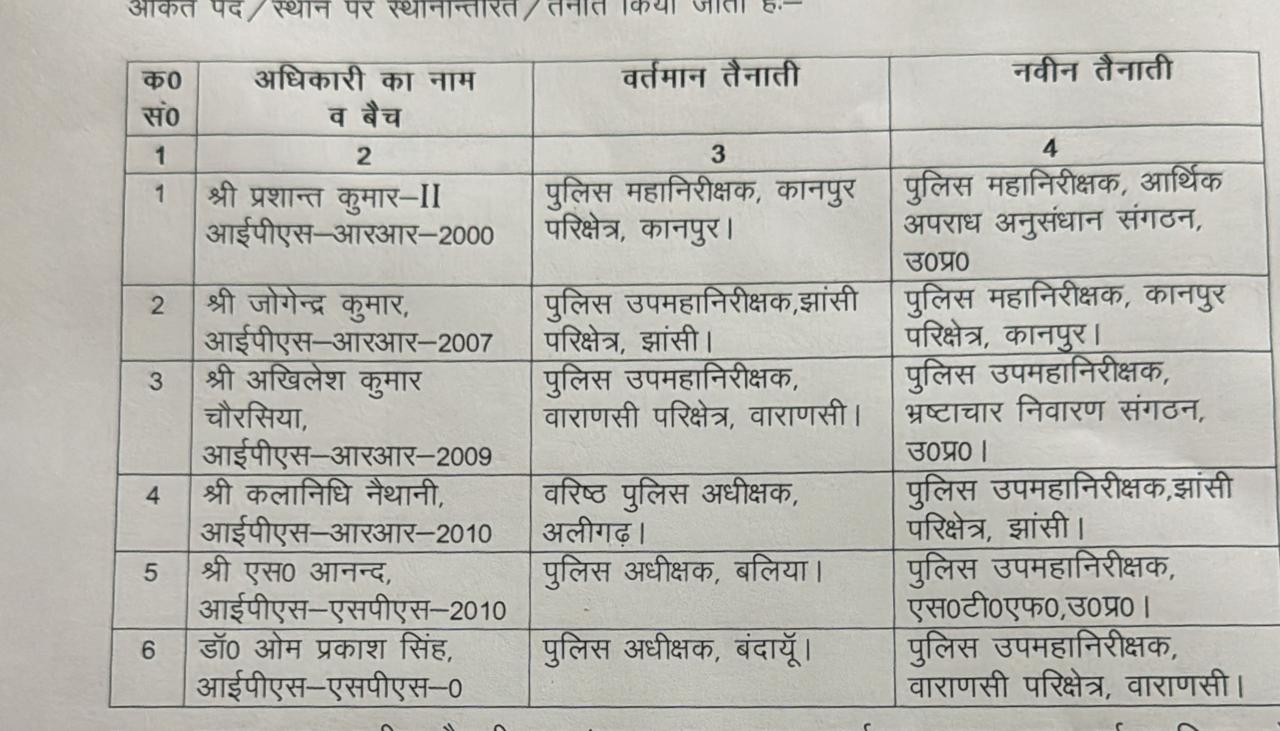 अंकित पद/स्थान पर स्थानान्तरित/तैनात किया जाता है:–
क0 सं0 | अधिकारी का नाम व बैच | वर्तमान तैनाती | नवीन तैनाती
1 | 2 | 3 | 4
1 | श्री प्रशान्त कुमार–II | पुलिस महानिरीक्षक, कानपुर | पुलिस महानिरीक्षक, आर्थिक
आईपीएस–आरआर–2000 | परिक्षेत्र, कानपुर। | अपराध अनुसंधान संगठन,
उ0प्र0
2 | श्री जोगेन्द्र कुमार, | पुलिस उपमहानिरीक्षक,झांसी | पुलिस महानिरीक्षक, कानपुर
आईपीएस–आरआर–2007 | परिक्षेत्र, झांसी। | परिक्षेत्र, कानपुर।
3 | श्री अखिलेश कुमार | पुलिस उपमहानिरीक्षक, | पुलिस उपमहानिरीक्षक,
चौरसिया, | वाराणसी परिक्षेत्र, वाराणसी। | भ्रष्टाचार निवारण संगठन,
आईपीएस–आरआर–2009 | उ0प्र0।
4 | श्री कलानिधि नैथानी, | वरिष्ठ पुलिस अधीक्षक, | पुलिस उपमहानिरीक्षक,झांसी
आईपीएस–आरआर–2010 | अलीगढ़। | परिक्षेत्र, झांसी।
5 | श्री एस0 आनन्द, | पुलिस अधीक्षक, बलिया। | पुलिस उपमहानिरीक्षक,
आईपीएस–एसपीएस–2010 | एस0टी0एफ0,उ0प्र0।
6 | डॉ0 ओम प्रकाश सिंह, | पुलिस अधीक्षक, बंदायूॅ। | पुलिस उपमहानिरीक्षक,
आईपीएस–एसपीएस–0 | वाराणसी परिक्षेत्र, वाराणसी।